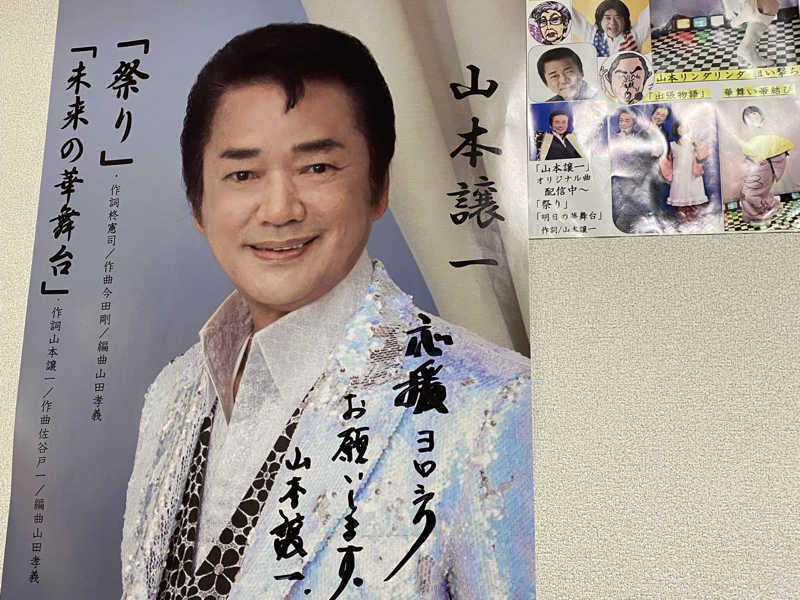 山本譲一
「祭り」・作詞柊憲司／作曲今田剛／編曲山田孝義
「未来の華舞台」・作詞山本譲一／作曲佐谷戸一／編曲山田孝義
応援ヨロシク
お願いします。
山本譲一.
山本リンダリンダ
「出張物語」 華舞い帯結び
「山本譲一」
オリジナル曲
配信中～
「祭り」
「明日の華舞台」
作詞/山本譲一